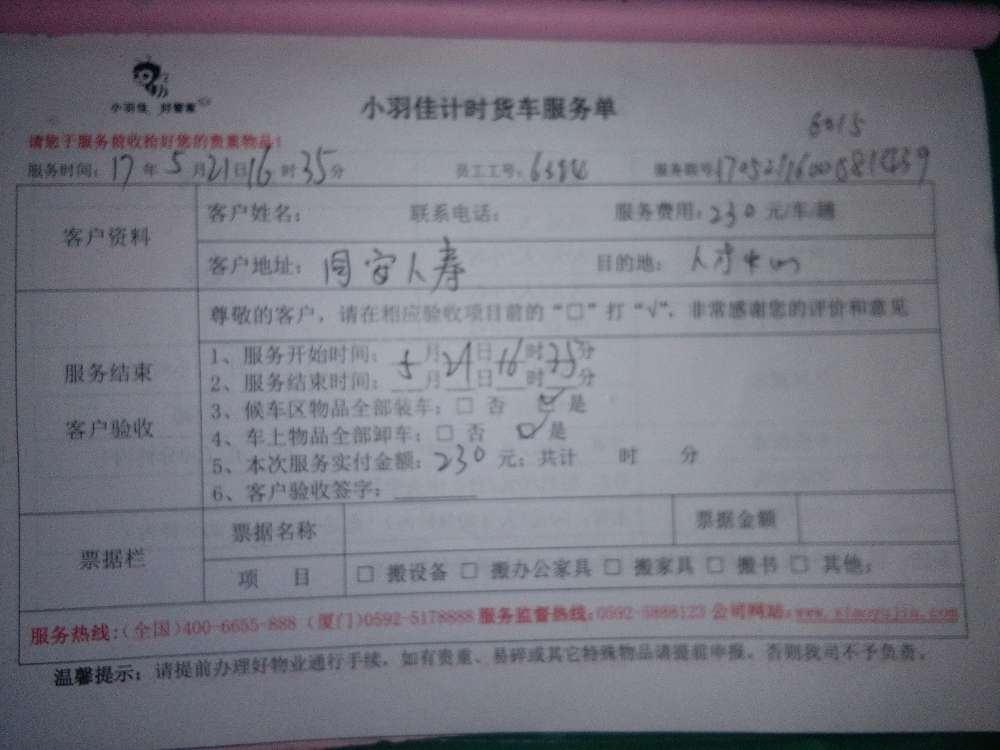 小羽佳 好管家
小羽佳计时货车服务单
6015
请您于服务前收拾好您的贵重物品!
服务时间：17年5月21日16时35分 员工工号： 服务账号
客户资料
客户姓名： 联系电话： 服务费用：230元/车/趟
客户地址：同安人寿 目的地：人寿
服务结束
客户验收
尊敬的客户，请在相应验收项目前的“□”打“√”，非常感谢您的评价和意见
1、服务开始时间：5月21日16时35分
2、服务结束时间：___月___日___时___分
3、候车区物品全部装车：□ 否 ☑ 是
4、车上物品全部卸车：□ 否 ☑ 是
5、本次服务实付金额：230元；共计 时 分
6、客户验收签字：
票据栏
票据名称 票据金额
项 目 □ 搬设备 □ 搬办公家具 □ 搬家具 □ 搬书 □ 其他：
服务热线：(全国)400-6655-888 (厦门)0592-5178888 服务监督热线：0592-5888123 公司网站：www.xiaoyujia.com
温馨提示：请提前办理好物业通行手续，如有贵重、易碎或其它特殊物品请提前申报，否则我司不予负责。